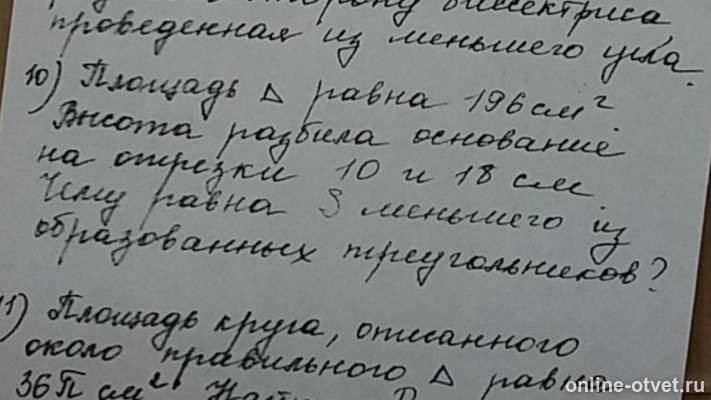 биссектриса,
проведенная из меньшего угла.
10) Площадь Δ равна 196 см²
Высота разбила основание
на отрезки 10 и 18 см
Чему равна S меньшего из
образованных треугольников?
11) Площадь круга, описанного
около правильного Δ равна
36π см².
online-otvet.ru